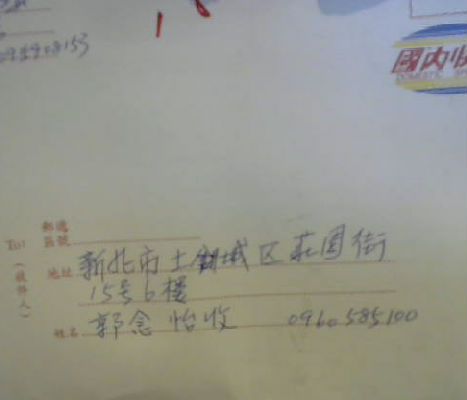 國內快
DOMESTIC
郵遞
To: 區號
(收件人)
地址 新北市土城区莊園街
15号6樓
姓名 郭念怡收 0960585100